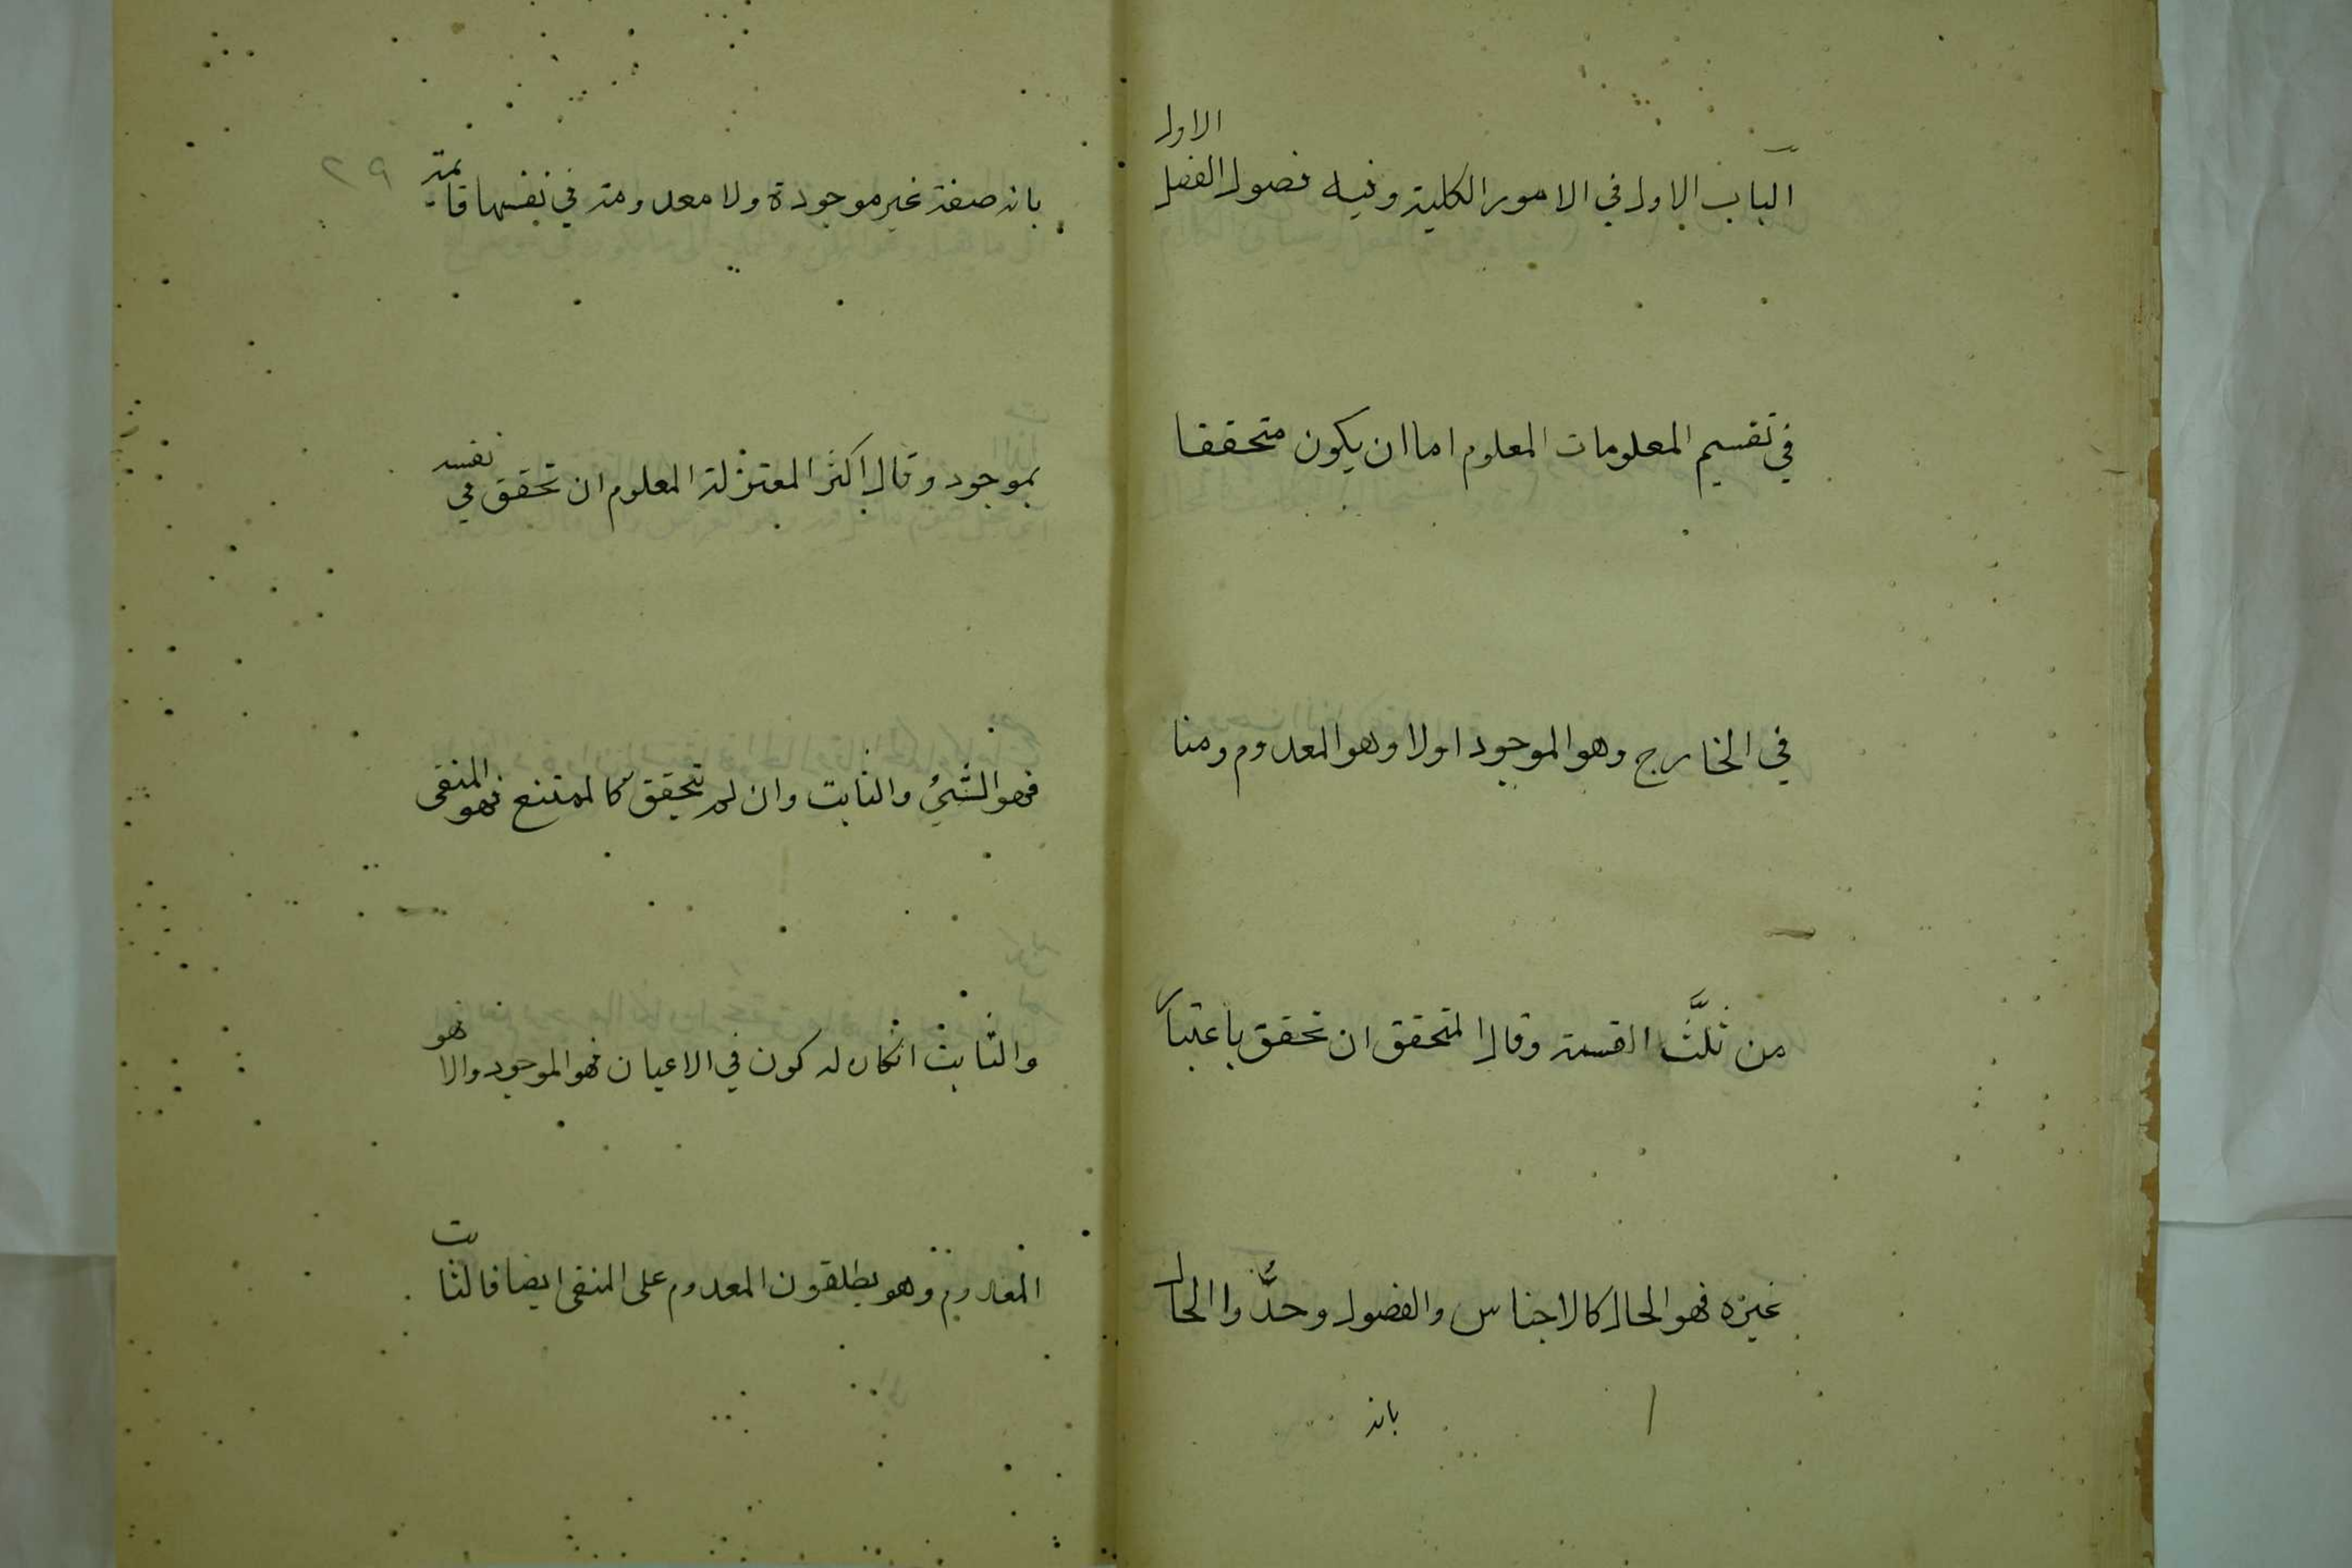 الباب الاول في الامور الكلية وفيه فصول الفصل الاول
في تقسيم المعلومات المعلوم اما ان يكون متحققا
في الخارج وهو الموجود اولا وهو المعدوم ومنا
من ثلَّث القسمة وقال المتحقق ان تحقق باعتبار
غيره فهو الحال كالاجناس والفصول وحدُّوا الحال
بانه
٢٩
بانه صفة غير موجودة ولا معدومة في نفسها قائمة
بموجود وقال اكثر المعتزلة المعلوم ان تحقق في نفسه
فهو الشيُ والثابت وان لم يتحقق كالممتنع فهو المنفى
والثابت انكان له كون في الاعيان فهو الموجود والا هو
المعدوم وهو يطلقون المعدوم على المنفى ايضا فالثابت